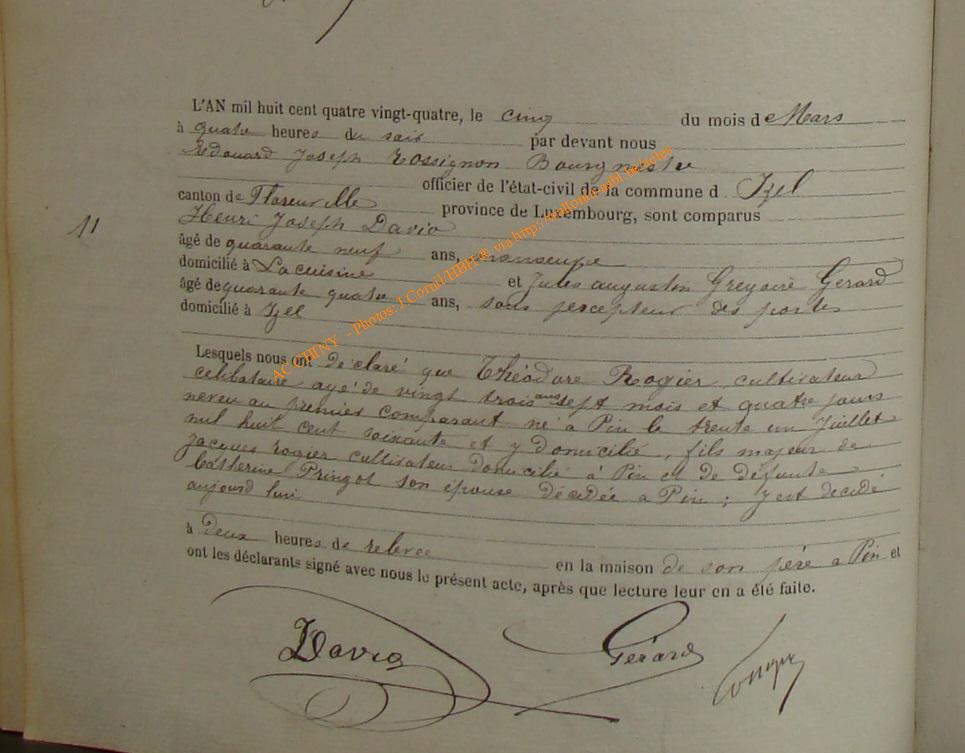 L'AN mil huit cent quatre vingt-quatre, le cinq du mois de Mars
à quatre heures du soir par devant nous
Edouard Joseph Rossignon Bourgmestre
officier de l'état-civil de la commune d Izel
canton de Florenville province de Luxembourg, sont comparus
Henri Joseph David
11
âgé de quarante neuf ans, manœuvre
domicilié à Lacuisine et Jules augustin Grégoire Gérard
âgé de quarante quatre ans, sous percepteur des postes
domicilié à Izel
Lesquels nous ont déclaré que Théodore Rogier, cultivateur
célibataire agé de vingt trois ans sept mois et quatre jours
neveu au premier comparant né à Pin le trente un Juillet
mil huit cent soixante et y domicilié, fils majeur de
Jacques rogier cultivateur domicilié à Pin et de défunte
Catherine Pringot son épouse décédée a Pin ; y est décédé
aujourd hui
à deux heures de relevée en la maison de son père a Pin et
ont les déclarants signé avec nous le présent acte, après que lecture leur en a été faite.
David Gérard
AC CHINY - Photos: J.Cornil/HBH® via http://